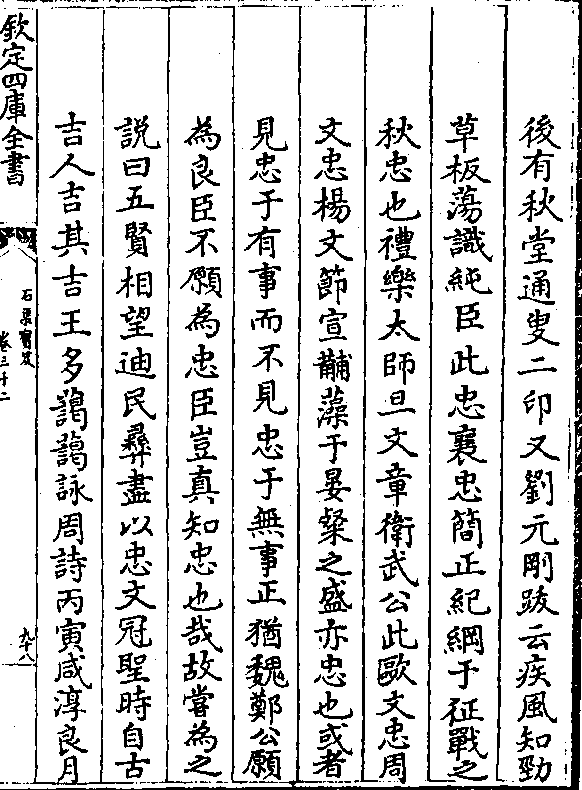 後有秋堂通叟二印又劉元剛跋云疾風知勁
草板蕩識純臣此忠襄忠簡正紀綱于征戰之
秋忠也禮樂太師旦文章衛武公此歐文忠周
文忠楊文節宣黼藻于晏粲之盛亦忠也或者
見忠于有事而不見忠于無事正猶魏鄭公願
為良臣不願為忠臣豈真知忠也哉故嘗為之
説曰五賢相望迪民彞盡以忠文冠聖時自古
吉人吉其吉王多藹藹詠周詩丙寅咸淳良月
欽定四庫全書
石渠寳笈
卷三十二
九十八